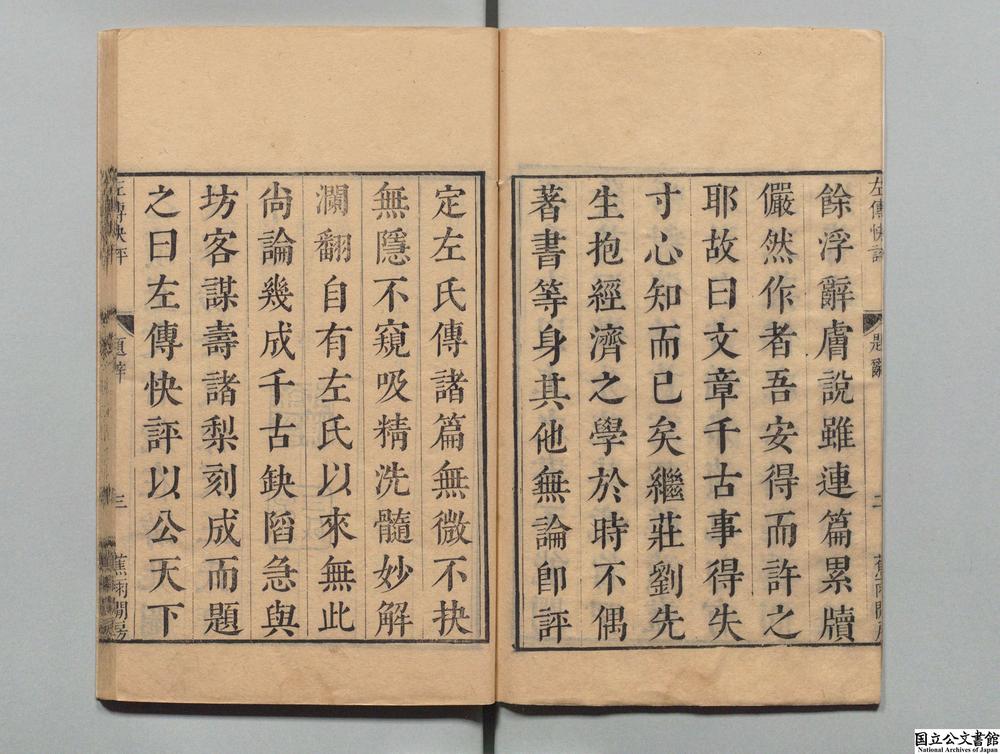 左傳快評 題辭 二 蕉雨閒房
餘浮辭膚說雖連篇累牘
儼然作者吾安得而許之
耶故曰文章千古事得失
寸心知而已矣繼莊劉先
生抱經濟之學於時不偶
著書等身其他無論即評
定左氏傳諸篇無微不抉
無隱不窺吸精洗髓妙解
瀾翻自有左氏以來無此
尙論幾成千古缺陷急與
坊客謀壽諸梨刻成而題
之曰左傳快評以公天下
左傳快評 題辭 三 蕉雨閒房
国立公文書館
National Archives of Japan